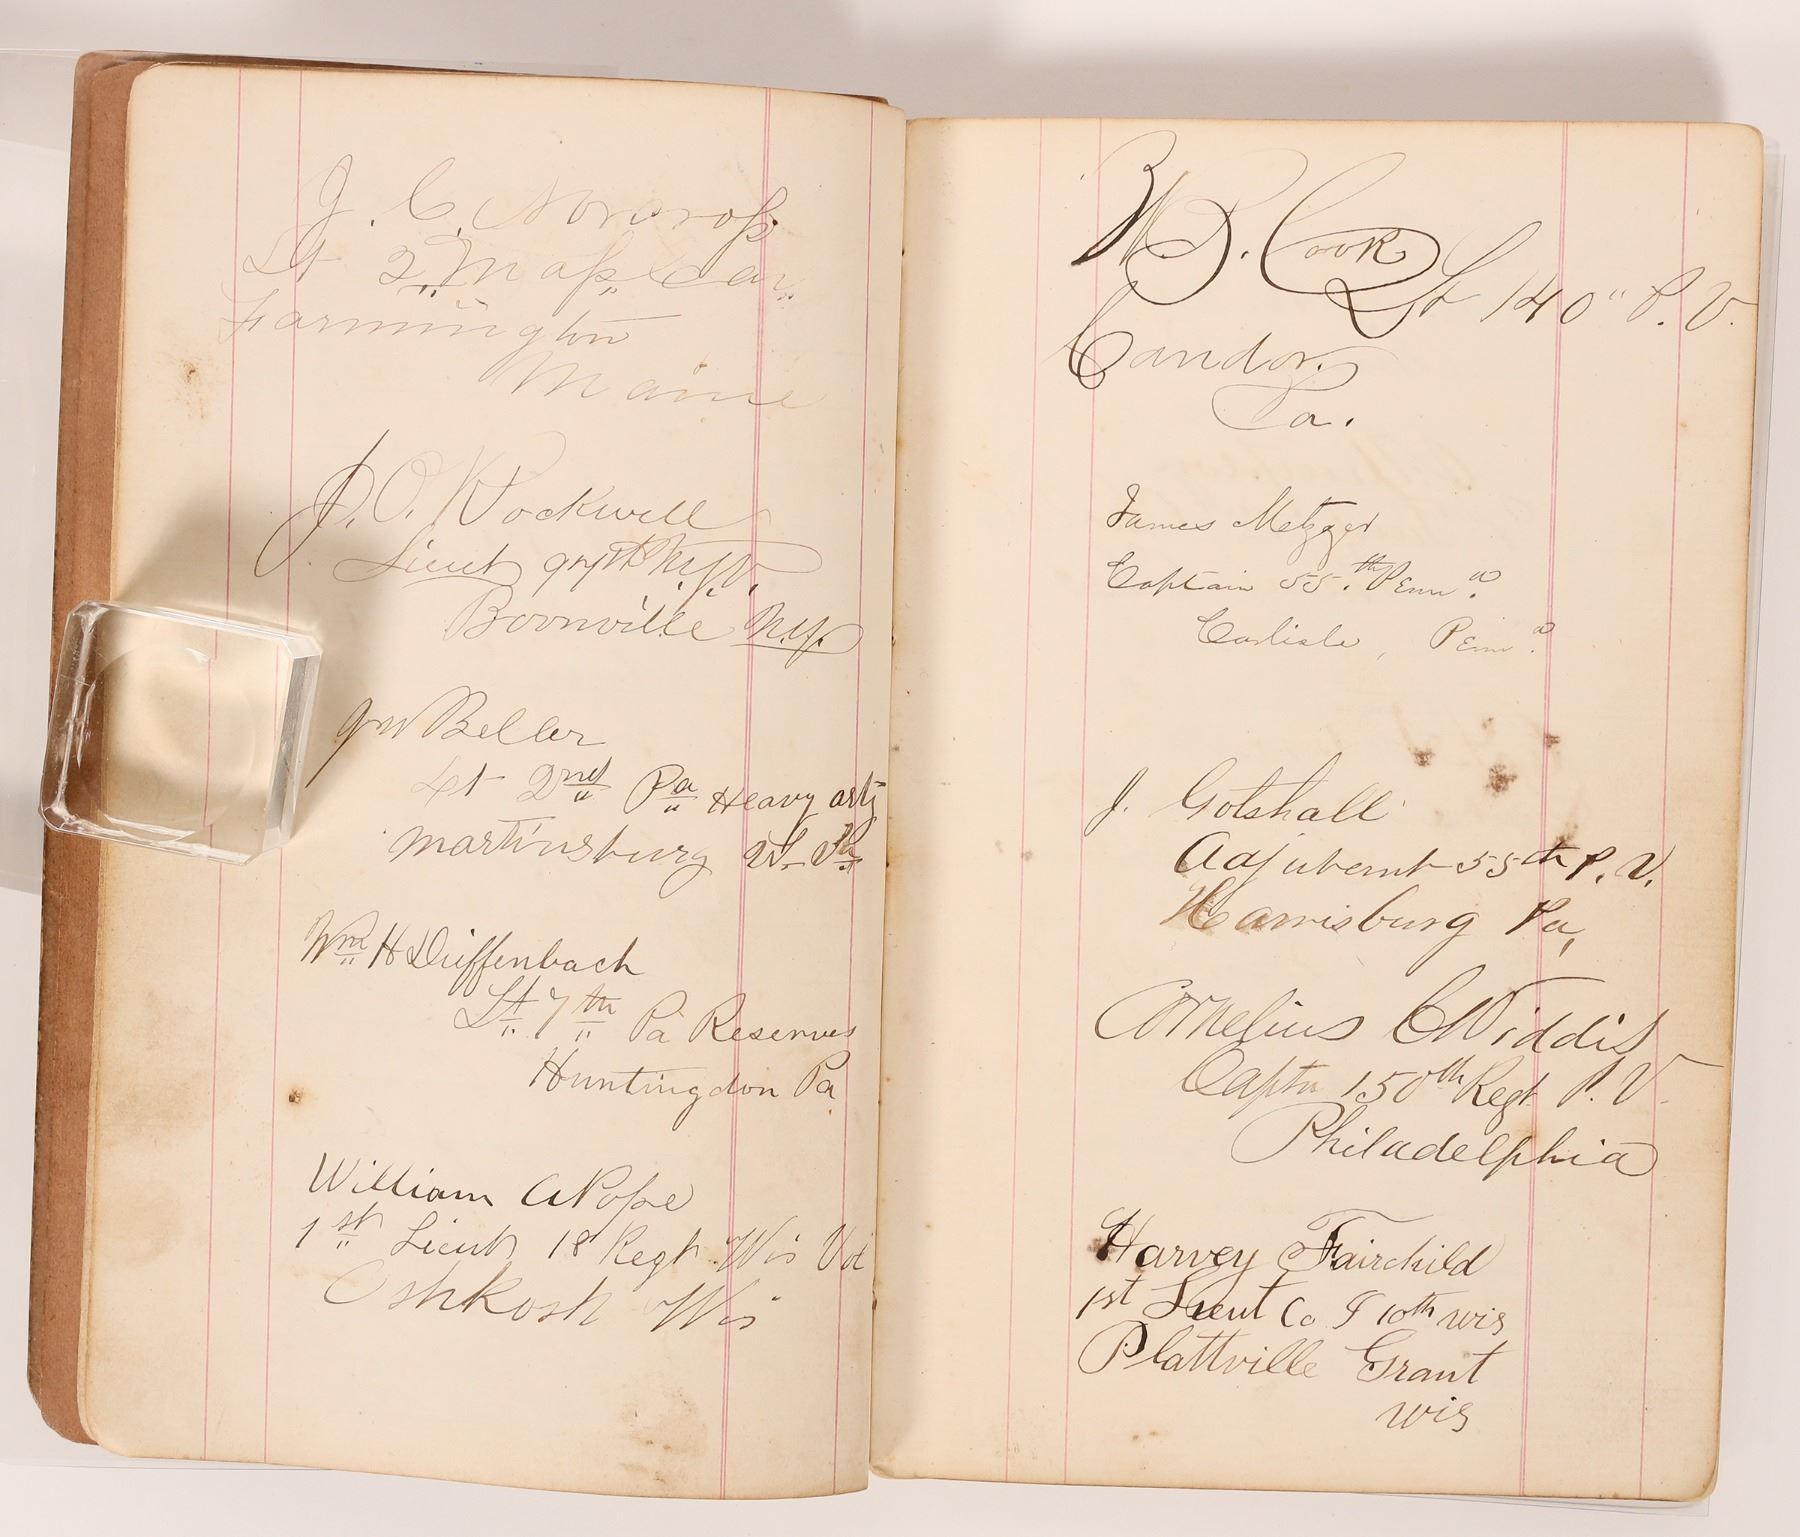 J. C. Norcross
Lt 2" Mass Cav.
Farmington
Maine
J. O. Rockwell
Lieut 97th N.Y.V.
Boonville N.Y.
Beller
Lt 2nd Pa Heavy arty
Martinsburg W. Va
Wm H Dieffenbach
Lt. 7th Pa Reserves
Huntingdon Pa
William A Pope
1st Lieut 18 Regt Wis Vol
Oshkosh Wis
W B. Cook
Lt 140" P. V.
Candor.
Pa.
James Metzger
Captain 55.th Penna.
Carlisle, Penna.
J. Gotshall
Adjuternt 55th P. V.
Harrisburg Pa,
Cornelius C Widdis
Captn 150th Regt P. V.
Philadelphia
Harvey Fairchild
1st Lieut Co 10th wis
Plattville Grant
wis